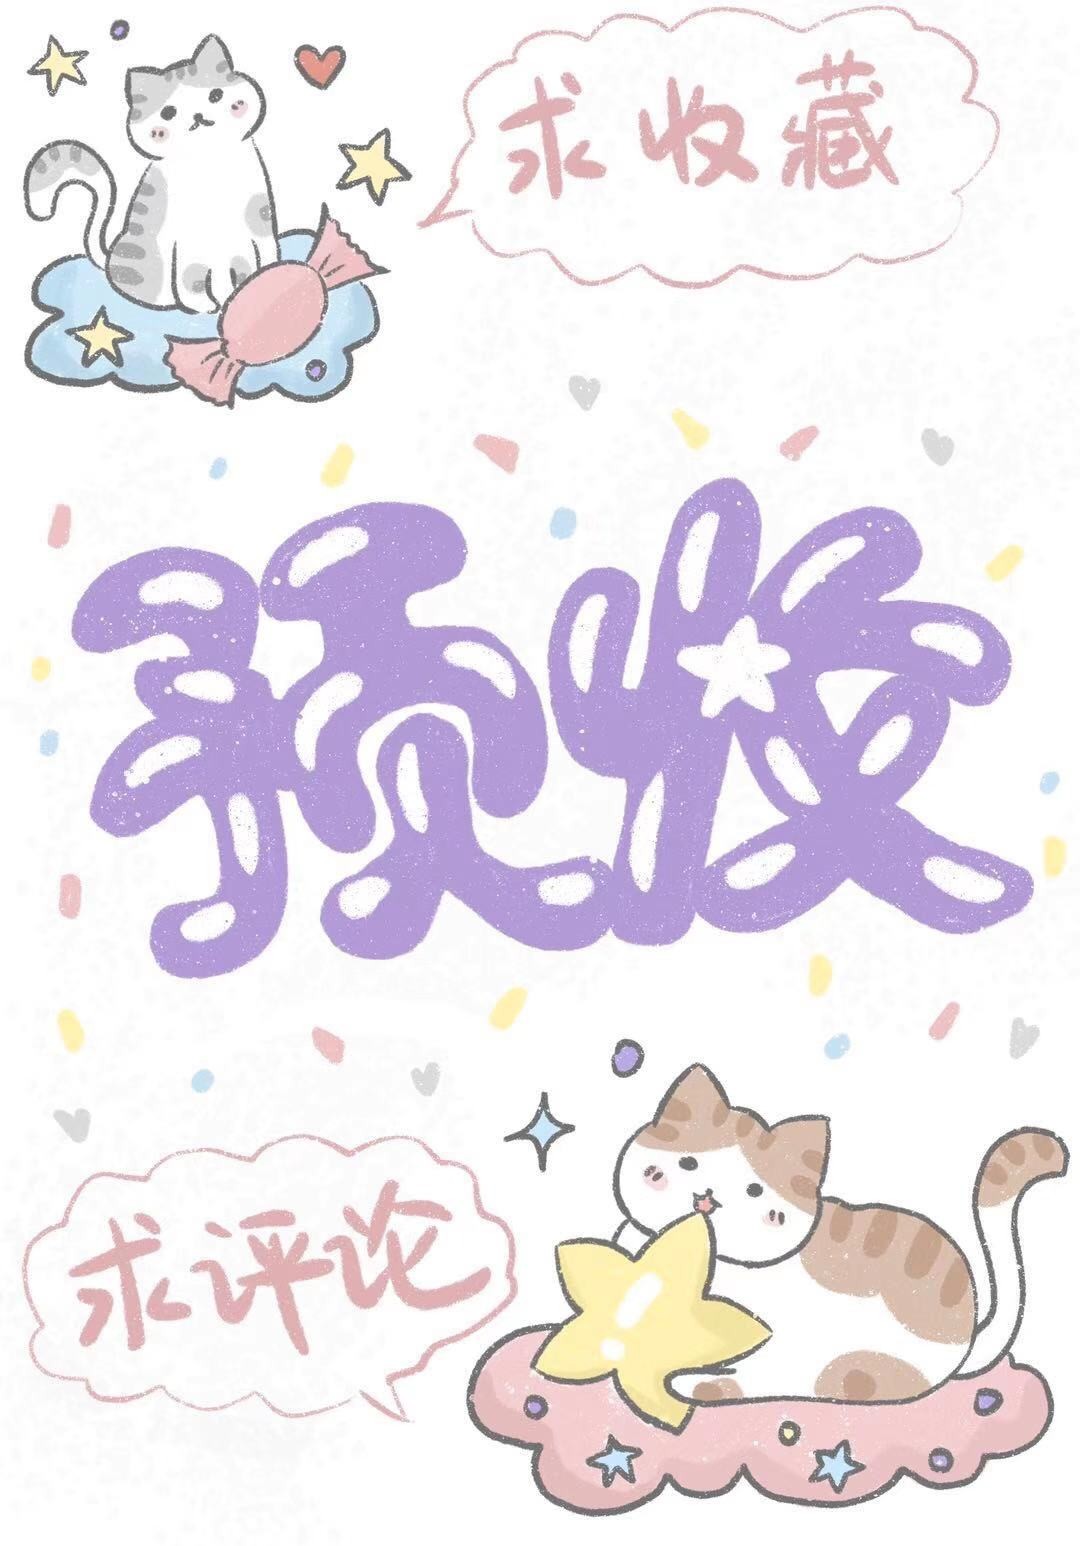 求收藏
预收
求评论